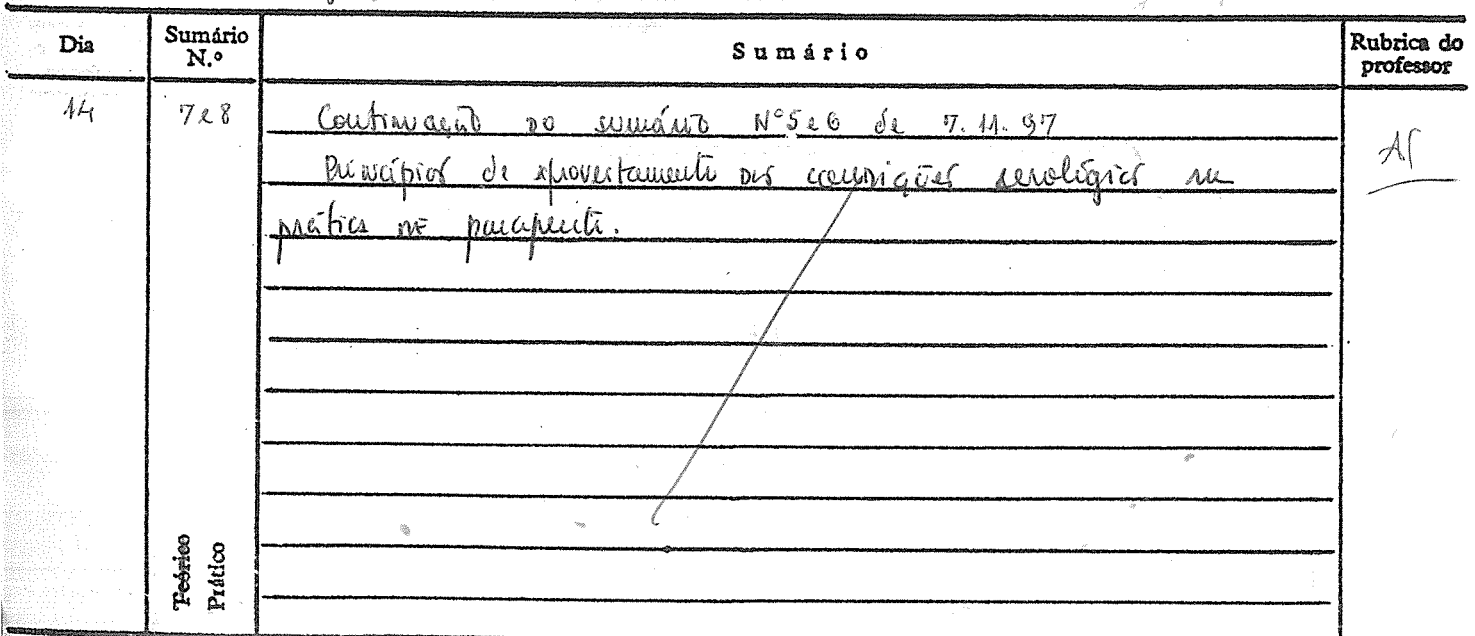 Dia Sumário N.º Sumário Rubrica do professor
14 7 e 8 Continuação do sumário Nº5 e 6 de 7.11.97
Princípios de aproveitamento das condições aerológicas na
prática de parapente.
Teórico
Prático